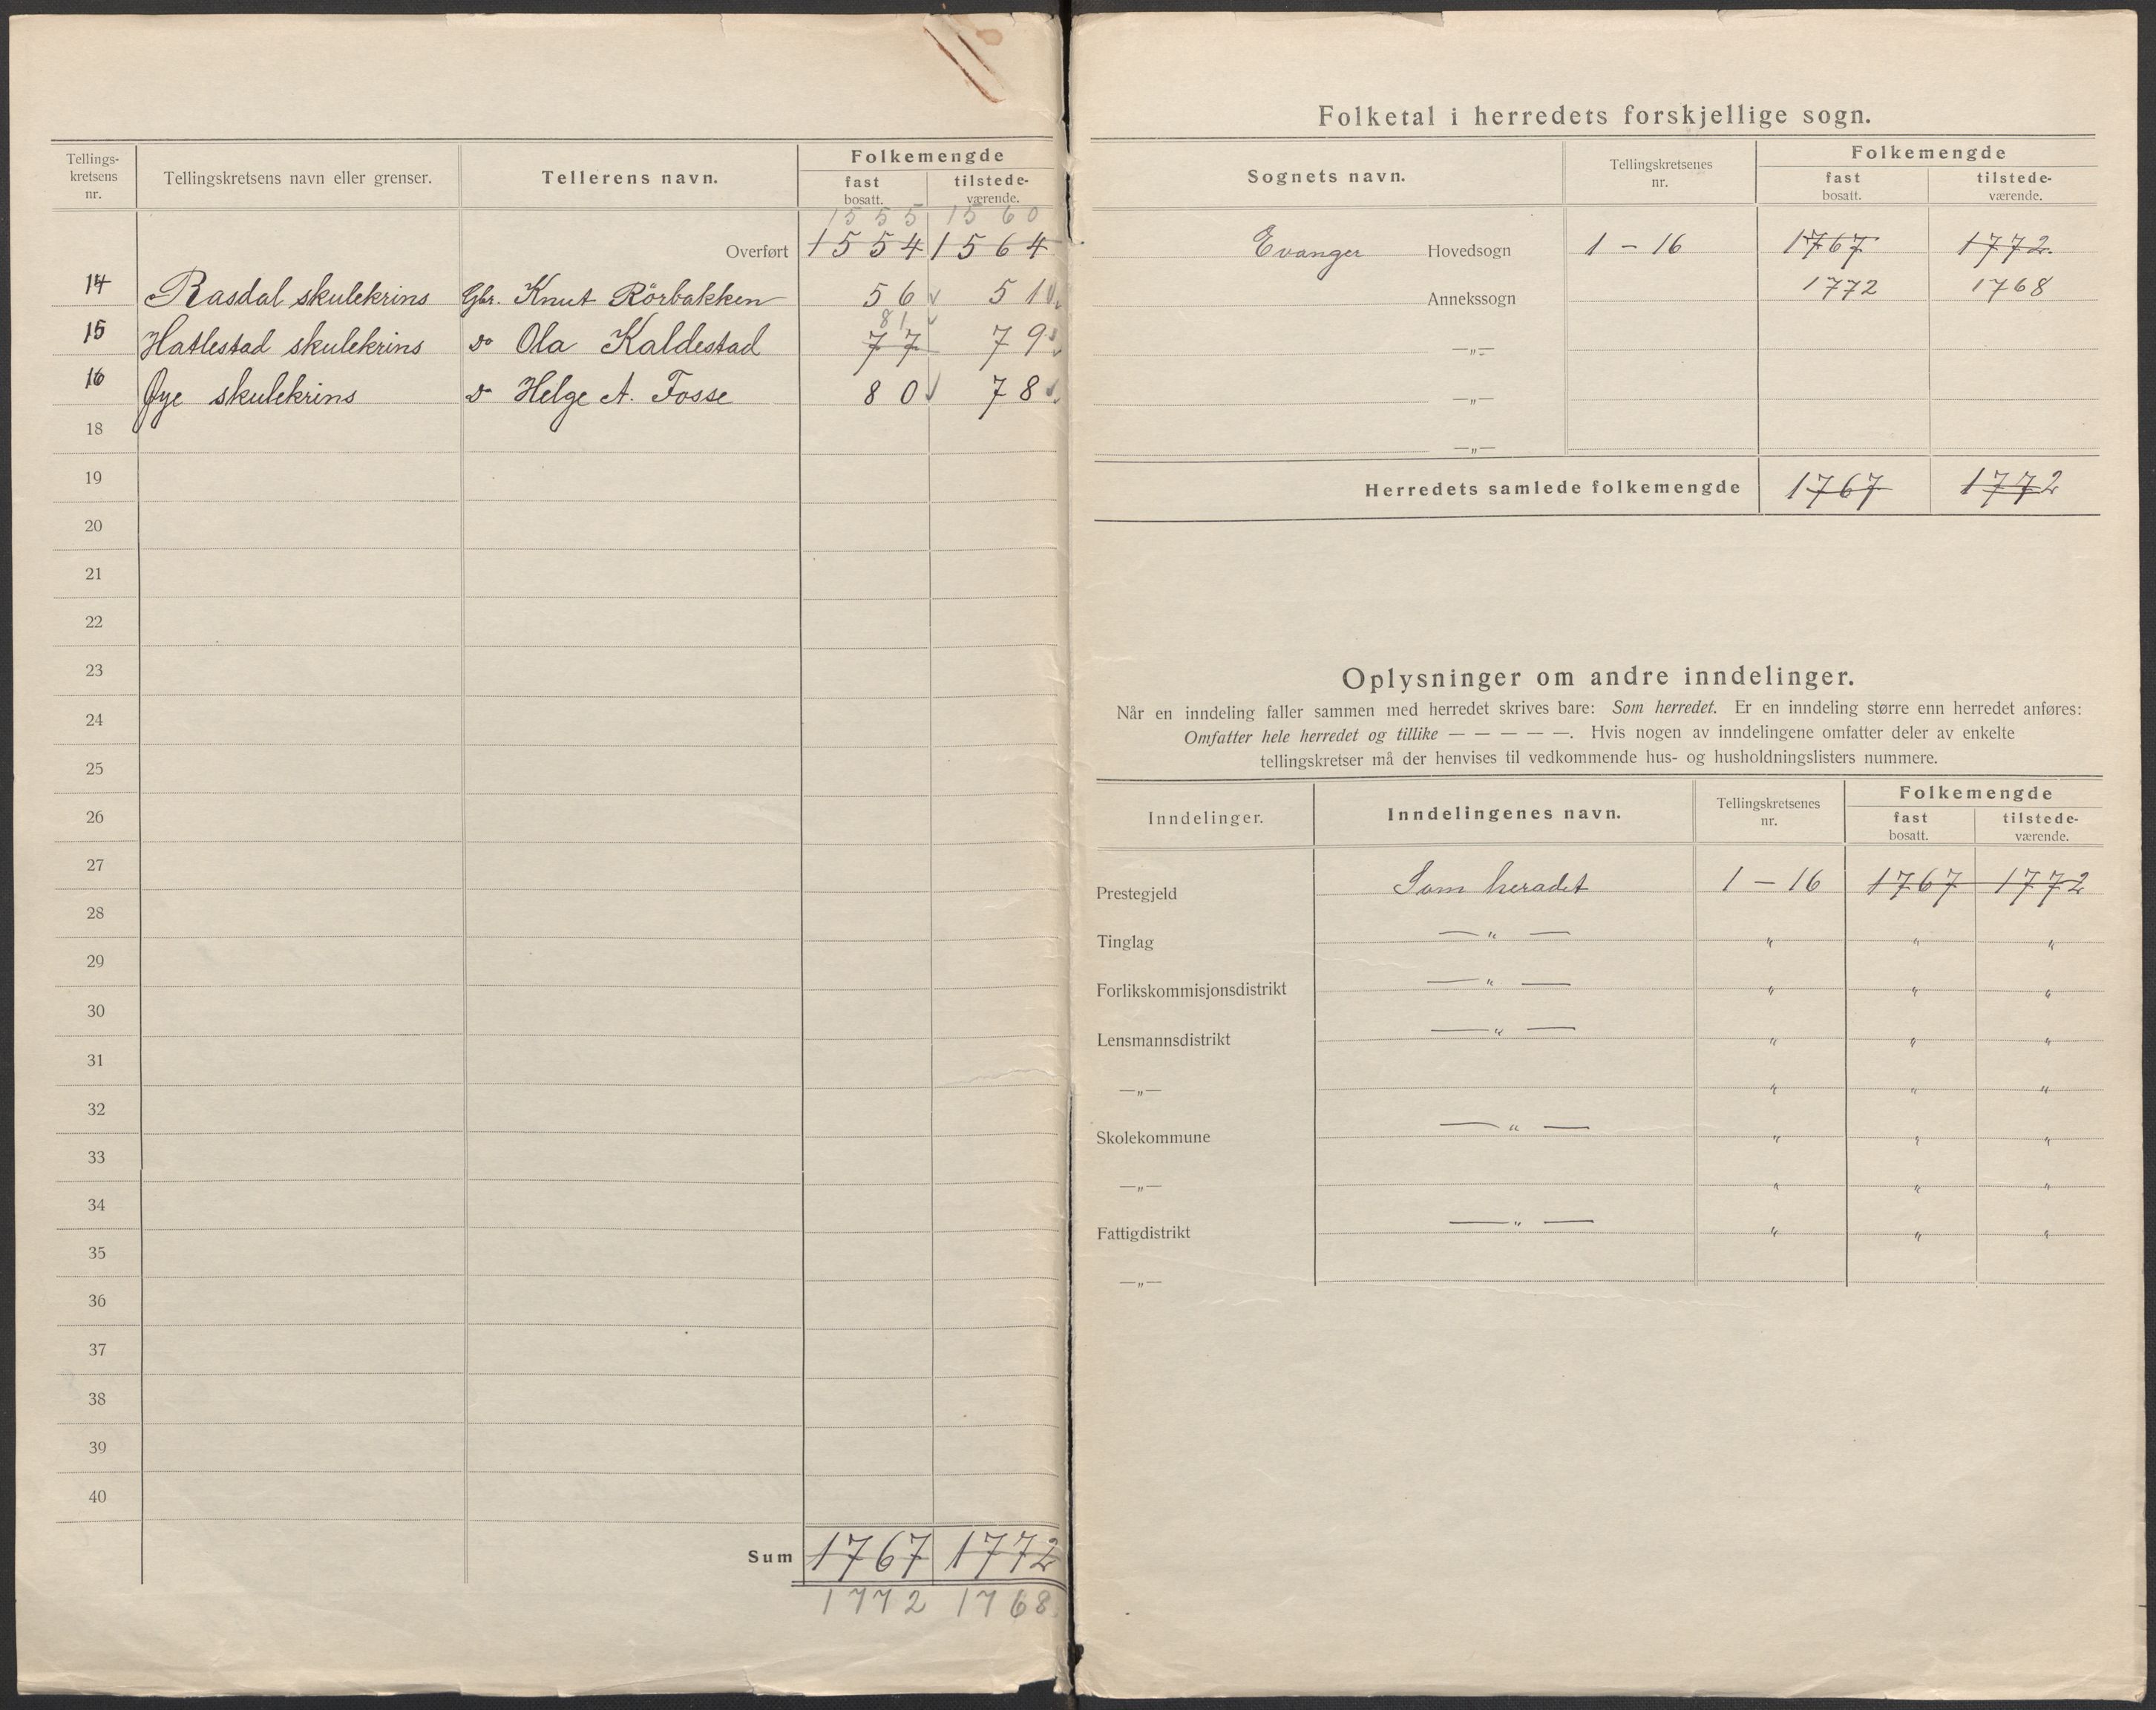 Tellings-
kretsens
nr.
Tellingskretsens navn eller grenser.
Tellerens navn.
Folkemengde
fast
bosatt.
tilstede-
værende.
1555 1560
Overført 1554 1564
14 Rasdal skulekrins Gbr. Knut Rörbakken 56 51
81
15 Hatlestad skulekrins do Ola Kaldestad 77 79
16 Øye skulekrins do Helge A. Fosse 80 78
18
19
20
21
22
23
24
25
26
27
28
29
30
31
32
33
34
35
36
37
38
39
40
Sum 1767 1772
1772 1768
Folketal i herredets forskjellige sogn.
Sognets navn.
Tellingskretsenes
nr.
Folkemengde
fast
bosatt.
tilstede-
værende.
Evanger Hovedsogn 1 – 16 1767 1772
Annekssogn 1772 1768
—„—
—„—
—„—
Herredets samlede folkemengde 1767 1772
Oplysninger om andre inndelinger.
Når en inndeling faller sammen med herredet skrives bare: Som herredet. Er en inndeling større enn herredet anføres:
Omfatter hele herredet og tillike — — — — —. Hvis nogen av inndelingene omfatter deler av enkelte
tellingskretser må der henvises til vedkommende hus- og husholdningslisters nummere.
Inndelinger.
Inndelingenes navn.
Tellingskretsenes
nr.
Folkemengde
fast
bosatt.
tilstede-
værende.
Prestegjeld Som heradet 1 – 16 1767 1772
Tinglag —„— „ „ „
Forlikskommisjonsdistrikt —„— „ „ „
Lensmannsdistrikt —„— „ „ „
—„— „ „ „
Skolekommune —„— „ „ „
—„— „ „ „
Fattigdistrikt —„— „ „ „
—„—